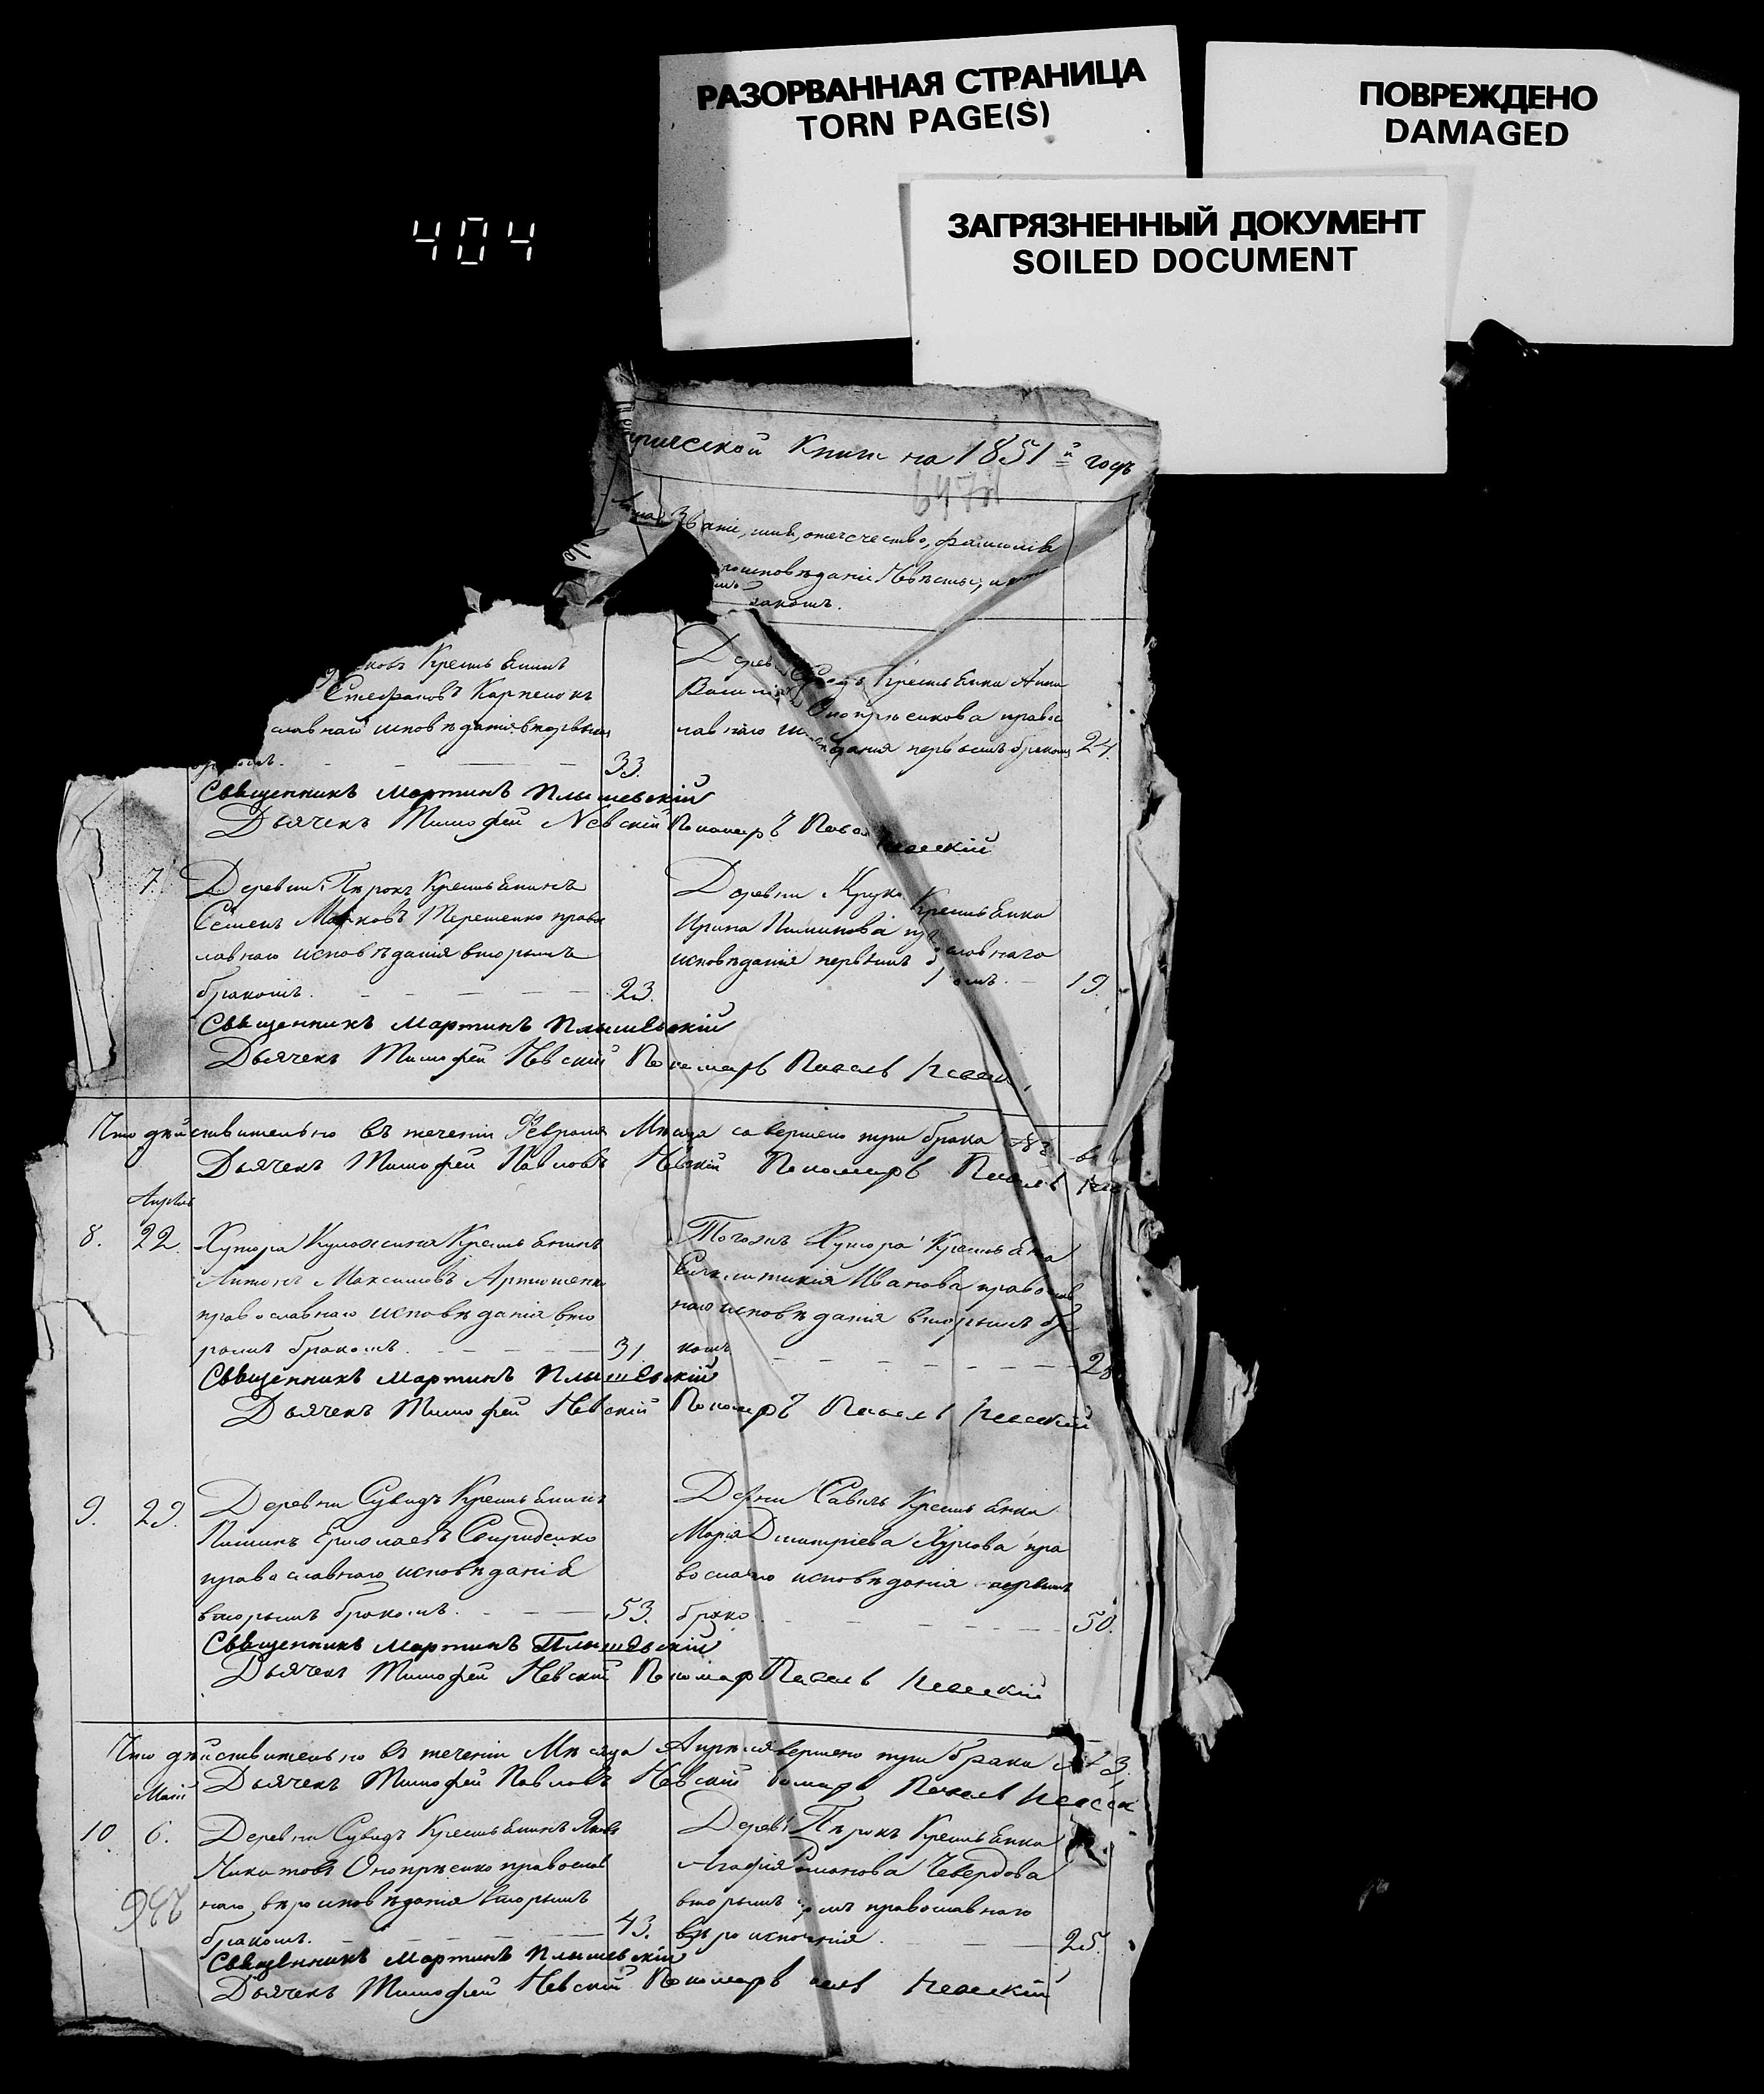 РАЗОРВАННАЯ СТРАНИЦА
TORN PAGE(S)
ПОВРЕЖДЕНО
DAMAGED
ЗАГРЯЗНЕННЫЙ ДОКУМЕНТ
SOILED DOCUMENT
404
рической Книги на 1851й годъ
имя, отечество, фамилія
исповѣданіе Невѣсты, и
бракомъ.
ковъ Крестьянинъ
Стефановъ Карпенокъ
славнаго исповѣданія вторымъ
бракомъ. 33.
Крестьянка Анна
Оноприенкова правос
лавнаго исповѣданія первымъ бракомъ 24.
Священникъ Мартинъ Плышевскій
Дьячекъ Тимофей Невскій Пономарь Павелъ Невскій
7. Деревни Пѣрокъ Крестьянинъ
Семенъ Марковъ Терешенко правос
лавнаго исповѣданія вторымъ
бракомъ. 23.
Деревни Крестьянка
Ирина Пиминова православнаго
исповѣданія первымъ бракомъ. 19.
Священникъ Мартинъ Плышевскій
Дьячекъ Тимофей Невскій Пономарь Павелъ Невскі
Что дѣйствительно въ теченіи Февраля Мѣсяца совершено три брака №3
Дьячекъ Тимофей Павловъ Невскій Пономарь Павелъ Нев
Апрѣль
8. 22. Хутора Крестьянинъ
Антонъ Максимовъ Артюшенко
православнаго исповѣданія вто
рымъ бракомъ. 31.
Тогожъ Хутора Крестьянка
Иванова православ
наго исповѣданія вторымъ бра
комъ 28.
Священникъ Мартинъ Плышевскій
Дьячекъ Тимофей Невскій Пономарь Павелъ Невскій
9. 29. Деревни Сувидъ Крестьянинъ
Пиминъ Ермолаевъ Свириденко
православнаго исповѣданія
вторымъ бракомъ. 53.
Крестьянка
Марія Дмитріева пра
вославнаго исповѣданія первымъ
брако 50.
Священникъ Мартинъ Плышевскій
Дьячекъ Тимофей Невскій Пономарь Павелъ Невскій
Что дѣйствительно въ теченіи Мѣсяца Апрѣля совершено три брака №3.
Дьячекъ Тимофей Павловъ Невскій Пономарь Павелъ Невск
Май
10. 6. Деревни Сувидъ Крестьянинъ Яковъ
Никитовъ Оноприенко православ
наго вѣроисповѣданія вторымъ
бракомъ. 43.
Дерев Пѣрокъ Крестьянка
Агафія Романова Чевердова
вторымъ православнаго
вѣроиспо 25.
Священникъ Мартинъ Плышевскій
Дьячекъ Тимофей Невскій Пономарь Невскій